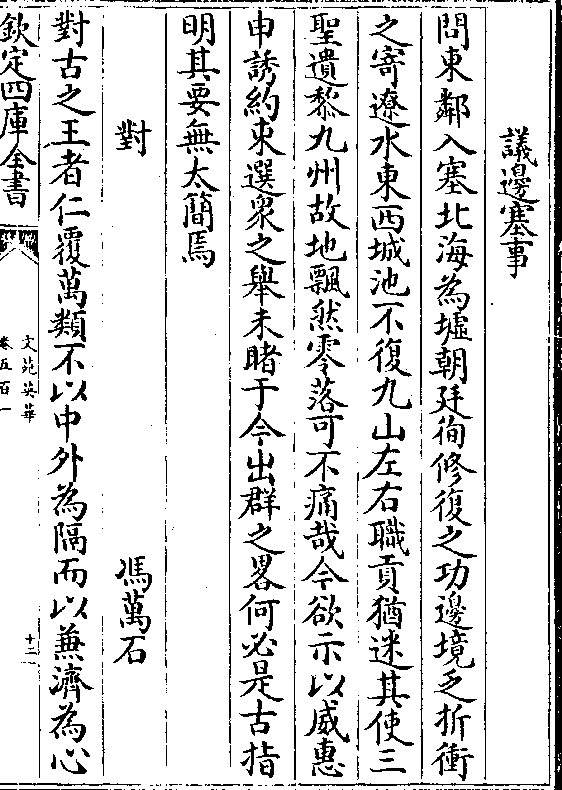 議邊塞事
問東鄰入塞北海為墟朝廷徇修復之功邊境乏折衝
之寄遼水東西城池不復九山左右職貢猶迷其使三
聖遺黎九州故地飄然零落可不痛哉今欲示以威惠
申誘約束選衆之舉未睹于今出群之畧何必是古指
明其要無太簡焉
對 馮萬石
對古之王者仁覆萬類不以中外為隔而以兼濟為心
欽定四庫全書
文苑英華
卷五百一
十二